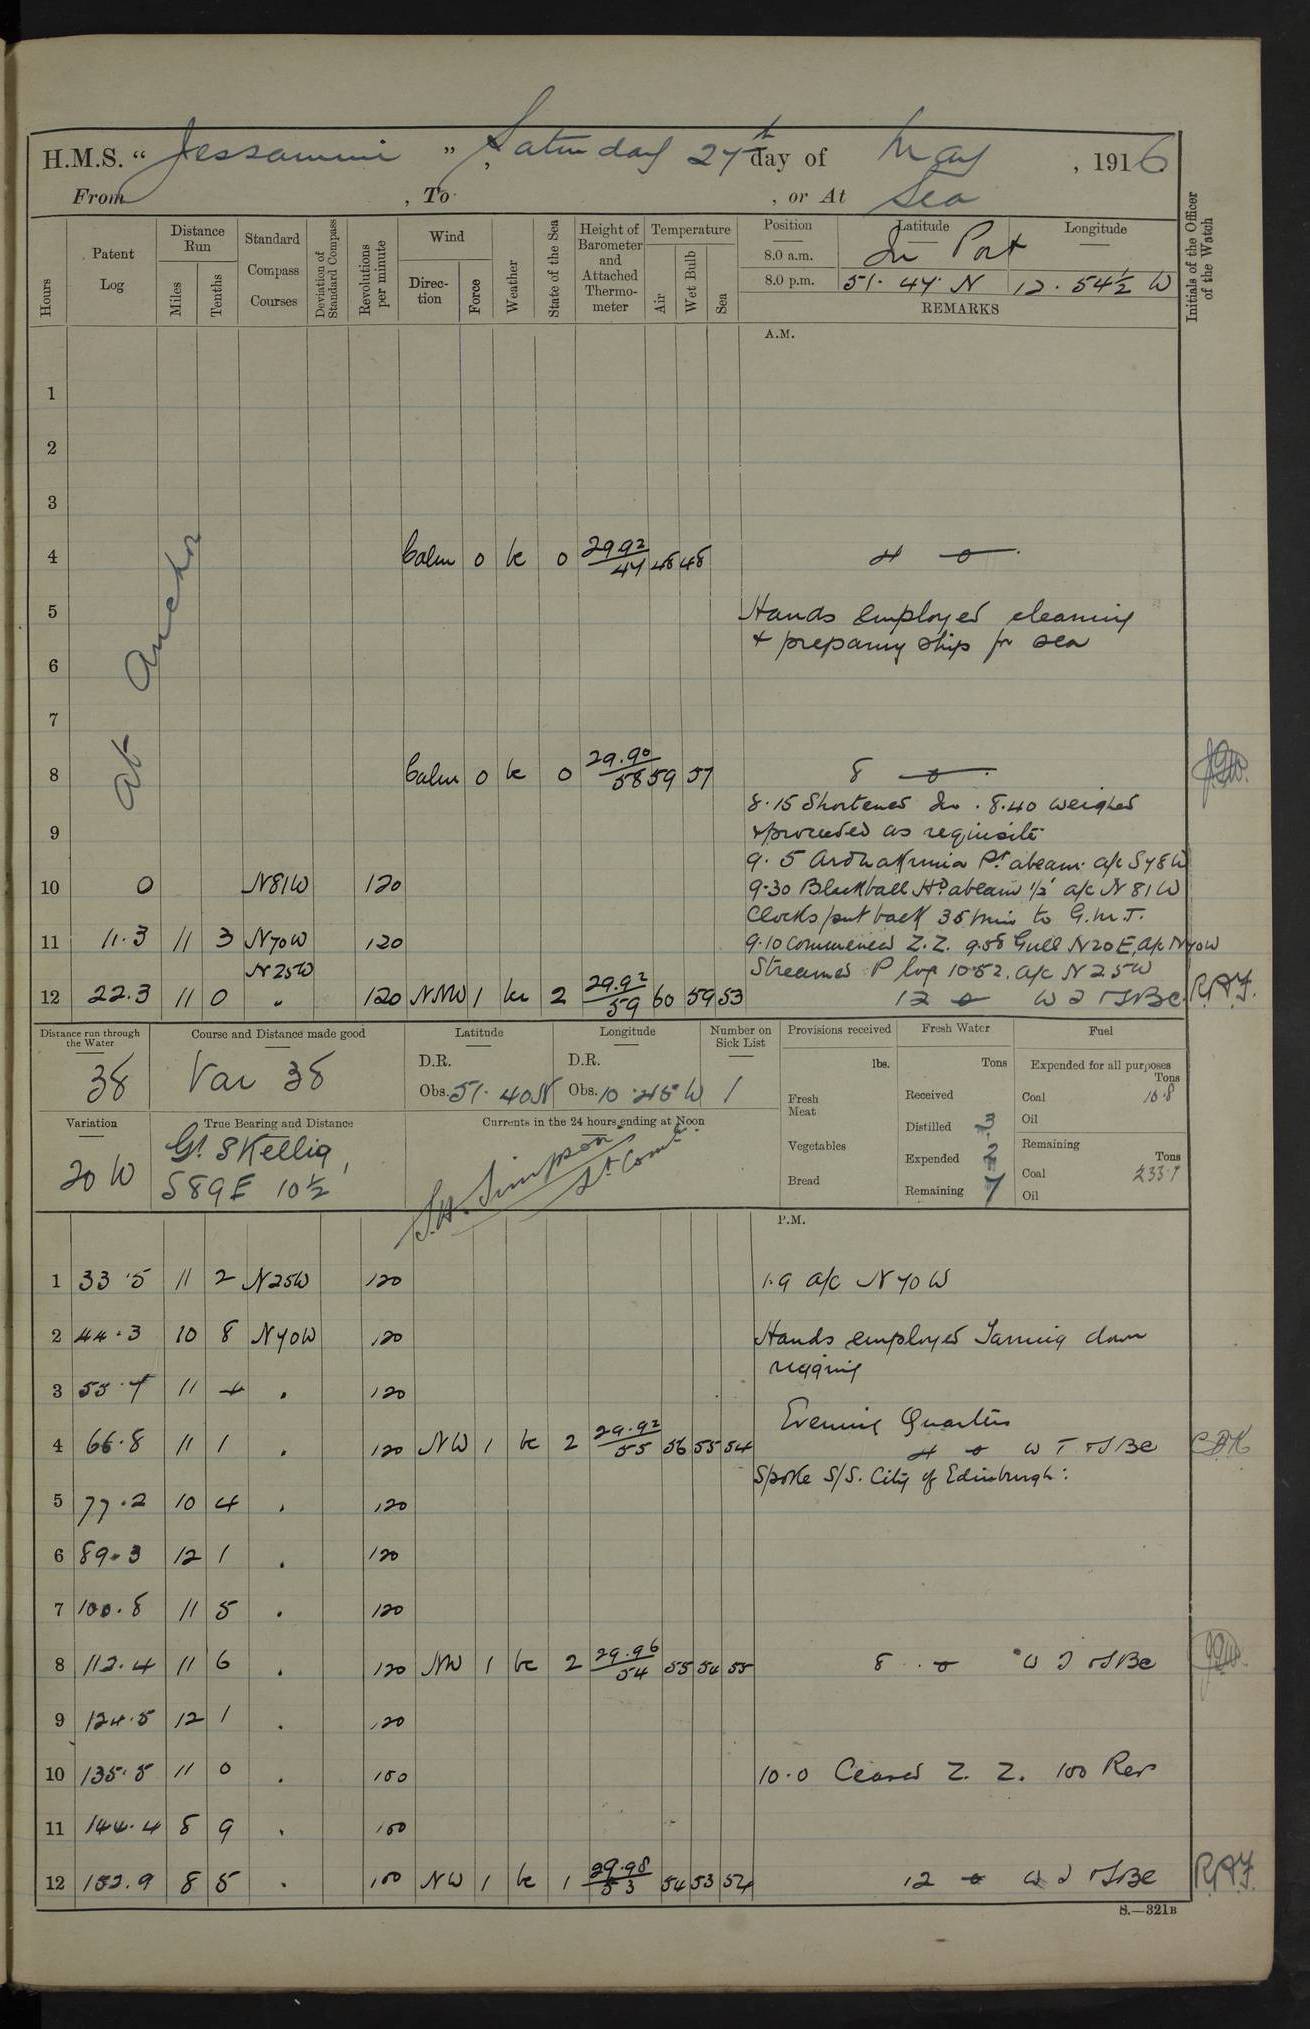 H.M.S. “ Jessamine ” , Saturday 27th day of May , 1916
From , To , or At Sea
Hours
Patent Log
Distance Run
Miles
Tenths
Standard Compass Courses
Deviation of Standard Compass
Revolutions per minute
Wind
Direction
Force
Weather
State of the Sea
Height of Barometer and Attached Thermometer
Temperature
Air
Wet Bulb
Sea
Position Latitude Longitude
8.0 a.m. In Port
8.0 p.m. 51. 47 N 12. 54½ W
REMARKS
Initials of the Officer of the Watch
A.M.
At Anchor
1
2
3
4 Calm 0 bc 0 29.92 47 48 48 4
5 Hands employed cleaning
& preparing ship for sea
6
7
8 Calm 0 bc 0 29.90 58 59 57 8
8.15 Shortened In . 8.40 weighed
9 & proceeded as requisite
9. 5 Pt. abeam. a/c S78W
10 0 N81W 120 9.30 Blackball Hd abeam ½' a/c N 81 W
Clocks put back 35 min to G.M.T.
11 11.3 11 3 N70W 120 9.10 Commenced Z. Z. 9.58 Gull N20E, a/c N70W
N25W Streamed P log 10.52. a/c N 25W
12 22.3 11 0 " 120 NNW 1 bc 2 29.92 59 60 59 53 12 R.A.F.
Distance run through the Water
38
Course and Distance made good
Var 38
Latitude
D.R.
Obs. 51. 40N
Longitude
D.R.
Obs. 10. 45 W
Number on Sick List
1
Provisions received
lbs.
Fresh Meat
Vegetables
Bread
Fresh Water
Tons
Received
Distilled 3
Expended 2
Remaining 7
Fuel
Expended for all purposes
Tons
Coal 10.8
Oil
Remaining
Tons
Coal 233.7
Oil
Variation
20 W
True Bearing and Distance
Gt. Skellig,
S89E 10½
Currents in the 24 hours ending at Noon
S.A. Simpson
Lt Comdr
P.M.
1 33.5 11 2 N25W 120 1.9 a/c N 70 W
2 44.3 10 8 N70W 120 Hands employed Tarring down
rigging
3 55.7 11 4 " 120
Evening Quarters
4 66.8 11 1 " 120 NW 1 bc 2 29.92 55 56 55 54 4
Spoke S/S. City of Edinburgh:
5 77.2 10 4 " 120
6 89.3 12 1 " 120
7 100.8 11 5 " 120
8 112.4 11 6 " 120 NW 1 bc 2 29.96 54 55 54 55 8
9 124.5 12 1 " 120
10 135.5 11 0 " 100 10.0 Ceased Z. Z. 100 Revs
11 144.4 8 9 " 100
12 152.9 8 5 " 100 NW 1 bc 1 29.98 53 54 53 54 12 R.A.F.
S.—321B